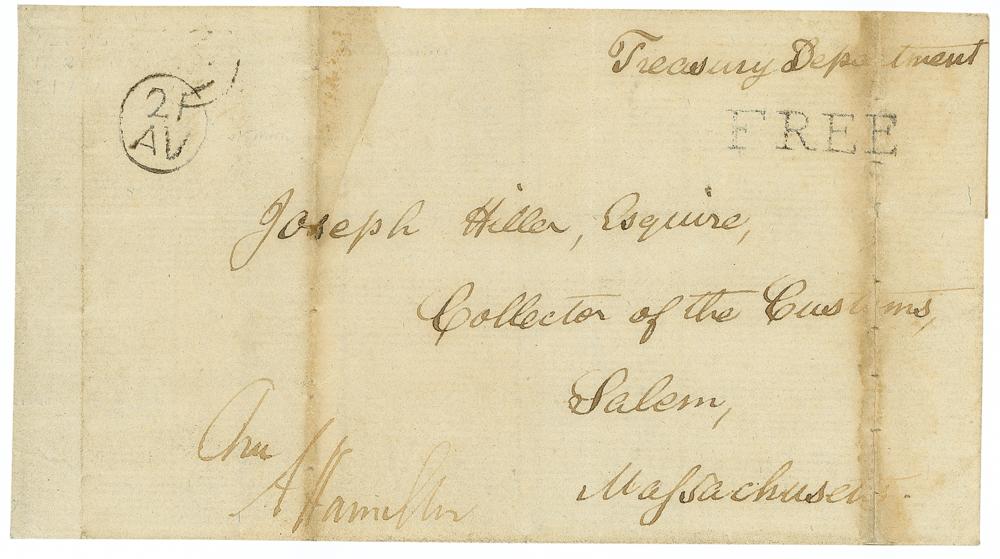 Treasury Department
21
AU
FREE
Joseph Hiller, Esquire,
Collector of the Customs,
Salem,
A Hamilton
Massachusetts.